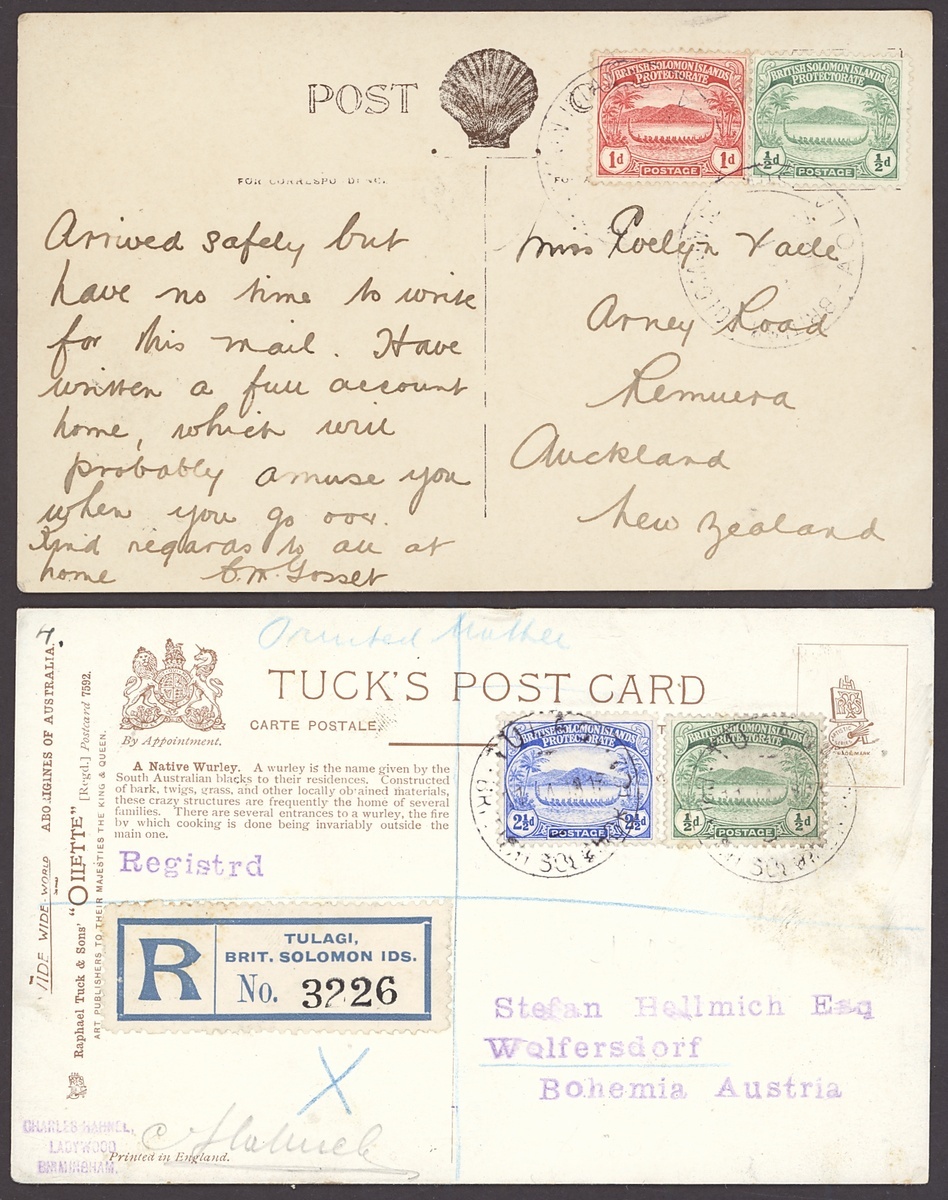 POST
FOR CORRESPONDENC.
BRITISH SOLOMON ISLANDS
PROTECTORATE
1d 1d
POSTAGE
BRITISH SOLOMON ISLANDS
PROTECTORATE
½d ½d
POSTAGE
Arrived safely but
have no time to write
for this mail. Have
written a full account
home, which will
probably amuse you
when you go over.
Kind regards to all at
home C.M. Gosset
Miss Evelyn
Arney Road
Remuera
Auckland
New Zealand
4.
Printed Matter
TUCK'S POST CARD
CARTE POSTALE
By Appointment.
A Native Wurley. A wurley is the name given by the
South Australian blacks to their residences. Constructed
of bark, twigs, grass, and other locally obtained materials,
these crazy structures are frequently the home of several
families. There are several entrances to a wurley, the fire
by which cooking is done being invariably outside the
main one.
BRITISH SOLOMON ISLANDS
PROTECTORATE
2½d 2½d
POSTAGE
BRITISH SOLOMON ISLANDS
PROTECTORATE
½d ½d
POSTAGE
TRADE MARK
Registrd
R
TULAGI,
BRIT. SOLOMON IDS.
No. 3226
Stefan Hellmich Esq
Wolfersdorf
Bohemia Austria
WIDE-WORLD ABORIGINES OF AUSTRALIA.
Raphael Tuck & Sons' "OILETTE" [Regd.] Postcard 7592.
ART PUBLISHERS TO THEIR MAJESTIES THE KING & QUEEN.
CHARLES HAHNEL,
LADYWOOD
BIRMINGHAM.
Printed in England.